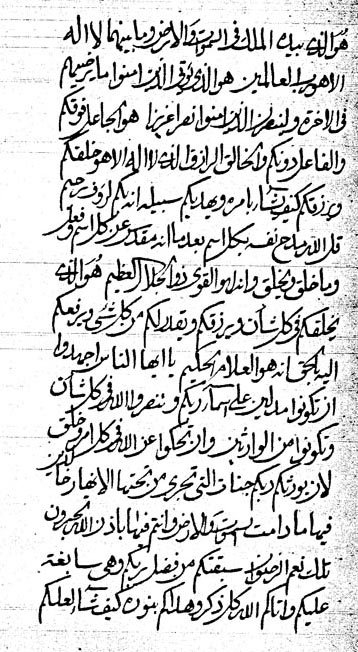 هو الذي بيده الملك في السموات والارض وما بينهما لا اله
الا هو رب العالمين هو الذي يوفي الذين امنوا ما يرضيهم
في الاخرة ولينصرن الذين امنوا نصرا عزيزا هو الجاعل فوقكم
والفاعل دونكم والخالق الرازق والله لا اله الا هو خلقكم
ويرزقكم كيف يشاء بامره ويهديكم سبيله انه بكم لرؤف رحيم
قل الله مدح نفسه بكل اسم بعد ما انه مقدس عن كل اسم وفعل
وما خلق ويخلق وانه لهو القوي ذو الجلال العظيم هو الذي
يخلقكم في كل شأن ويرزقكم ويقدر لكم من كل شيء ويرفعكم
اليه بالحق انه هو العلام الحكيم يا ايها الناس اجهدوا
ان تكونوا مدلين على اسماء ربكم وتنصروا الله في كل شأن
وتكونوا من الوارثين وان تحكوا عن الله في كل امر وخلق
لان يورثكم ربكم جنات التي تجري من تحتها الانهار خالدين
فيها ما دامت السموات والارض وانتم فيها باذن الله تحبرون
تلك نعم الرضوان سبقتكم من فضل ربكم وهي سابغة
عليكم واتاكم الله كل ذكر وهداكم بنوره كيف يشاء لعلكم